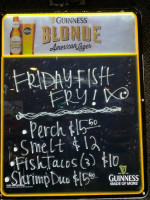 GUINNESS
BLONDE
American Lager
FRIDAY FISH
FRY!
• Perch $15.50
• Smelt $12
• Fish Tacos (3) $10
• Shrimp Duo $15.50
GUINNESS
MADE OF MORE